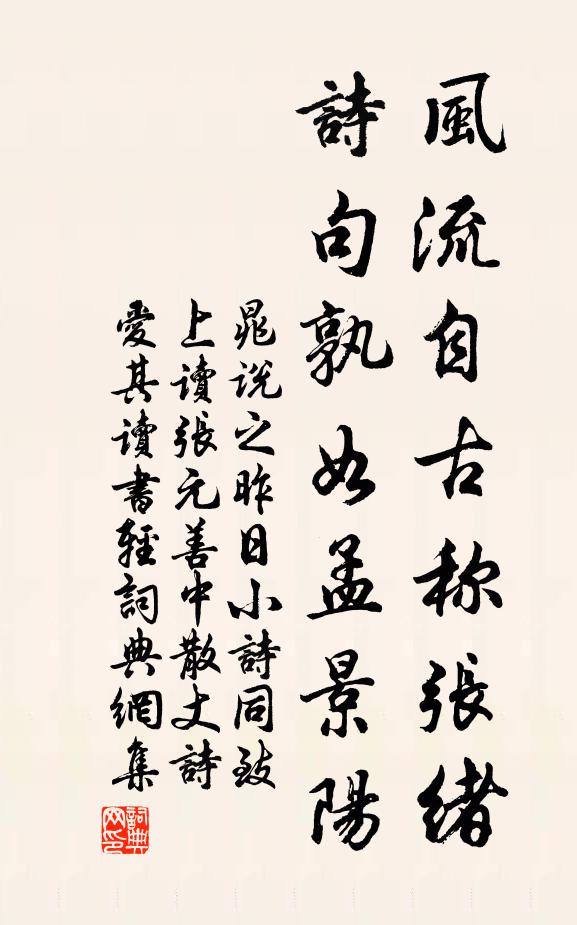 風流自古称張緒
詩句孰如孟景陽
晁說之昨日小詩同致
上讀張元善中散丈詩
愛其讀書輕詞典網集
詞典
网印